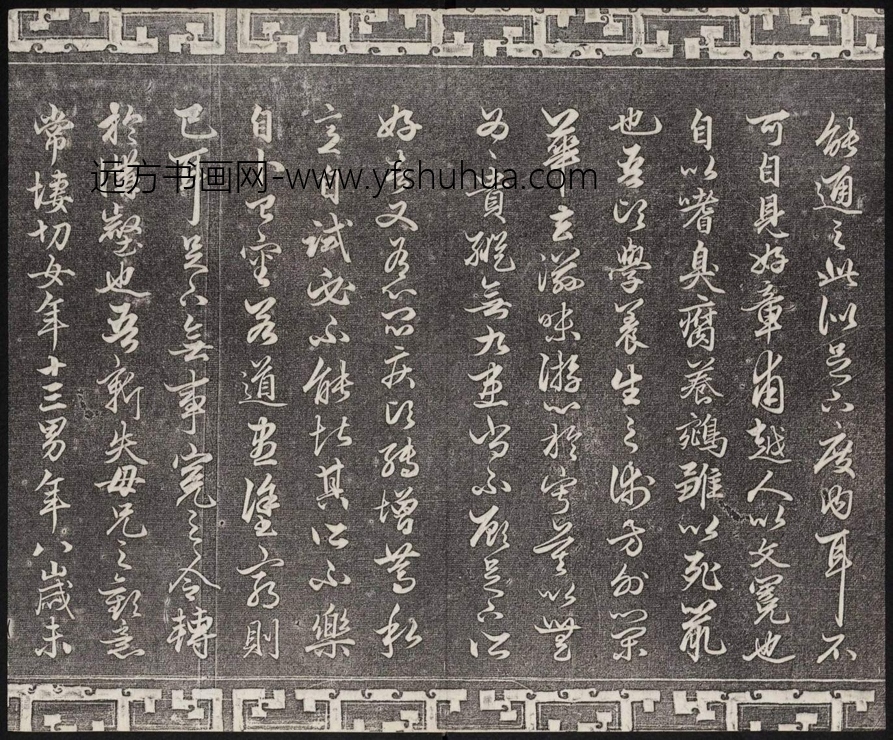 能通之此似足下度內耳不
可自見好章甫越人以文冕也
自以嗜臭腐養鵷雛以死鼠
也吾頃學養生之術方外榮
華去滋味游心於寂莫以無
為為貴縱無九患尚不顧足下所
好者又有心悶疾頃轉增篤私
意自試必不能堪其所不樂
自卜已審若道盡塗窮則
已耳足下無事冤之令轉
於溝壑也吾新失母兄之歡意
常悽切女年十三男年八歲未
远方书画网-www.yfshuhua.com